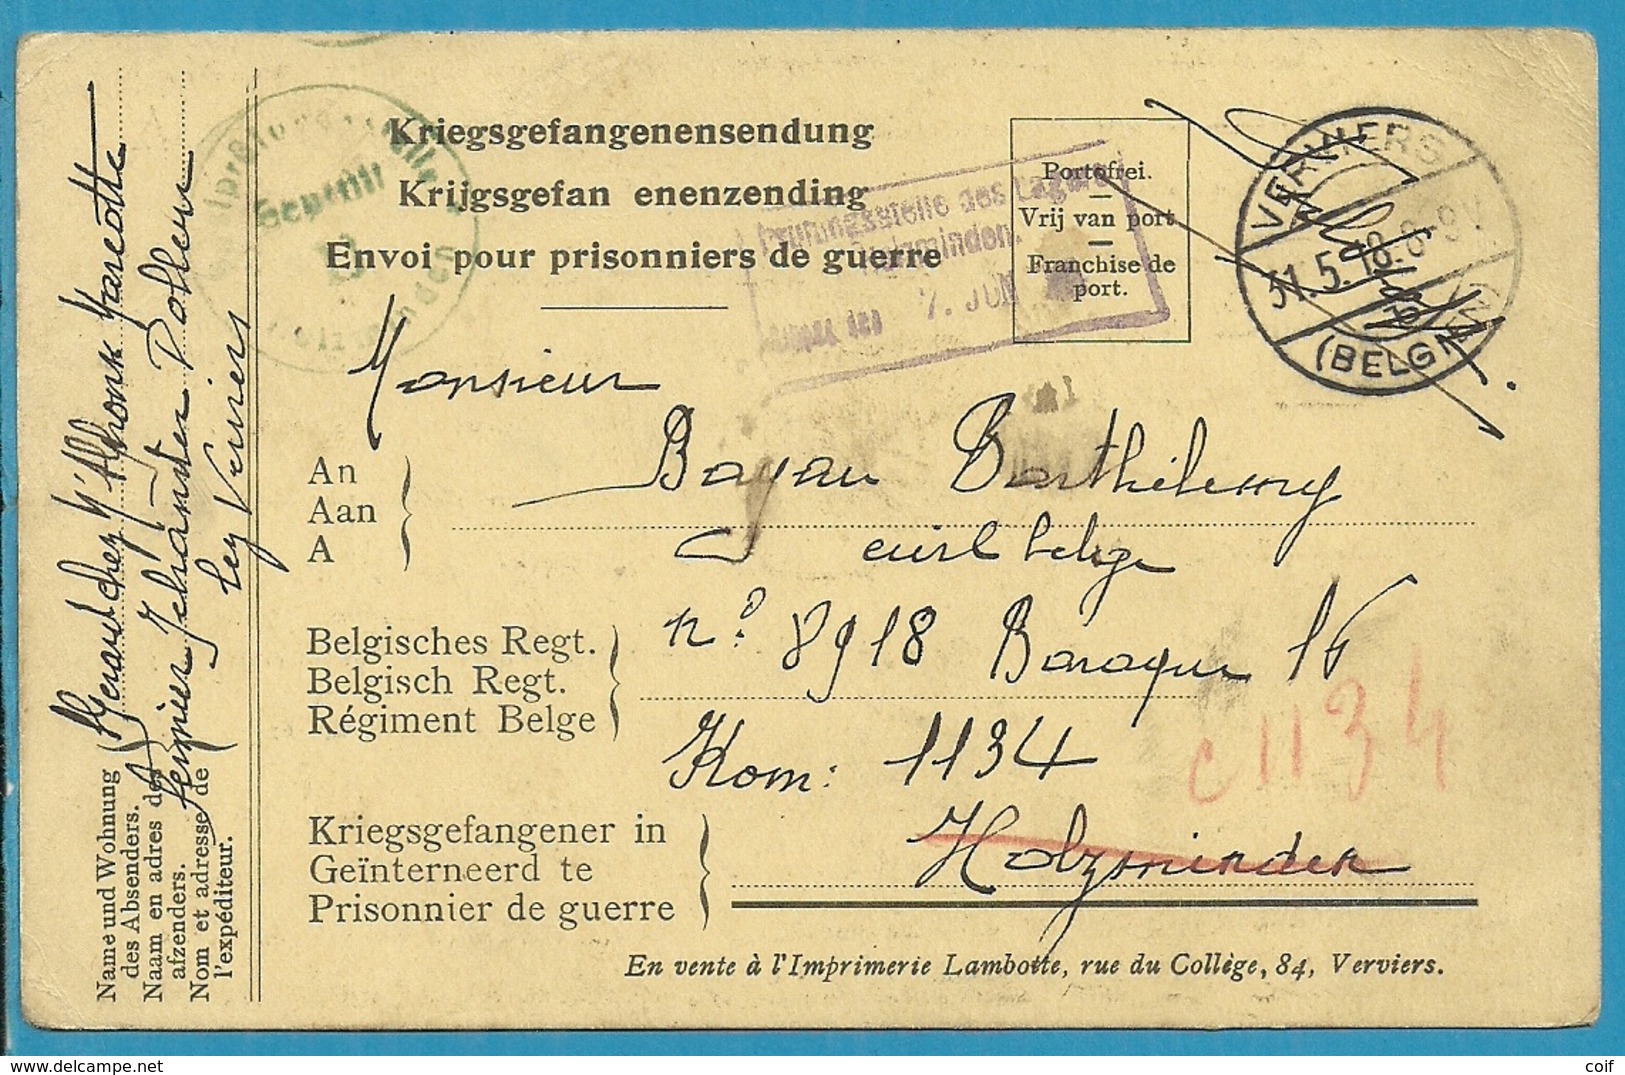 Kriegsgefangenensendung
Krijgsgefan enenzending
Envoi pour prisonniers de guerre
Portofrei.
Vrij van port
Franchise de
port.
VERVIERS
31.5.18. 8-9V
(BELGIEN)
Geprüft
Prüfungsstelle des Lagers
Holzminden.
7. JUN
Monsieur
An
Aan
A
Bayau Barthélemy
civil belge
Belgisches Regt.
Belgisch Regt.
Régiment Belge
n° 8918 Baraque 16
Kom: 1134
c 1134
Kriegsgefangener in
Geïnterneerd te
Prisonnier de guerre
Holzminden
En vente à l'Imprimerie Lambotte, rue du Collège, 84, Verviers.
Name und Wohnung
des Absenders.
Naam en adres des
afzenders.
Nom et adresse de
l'expéditeur.
Gerard chez Alphonse
fermier
lez Verviers
delcampe.net
coif